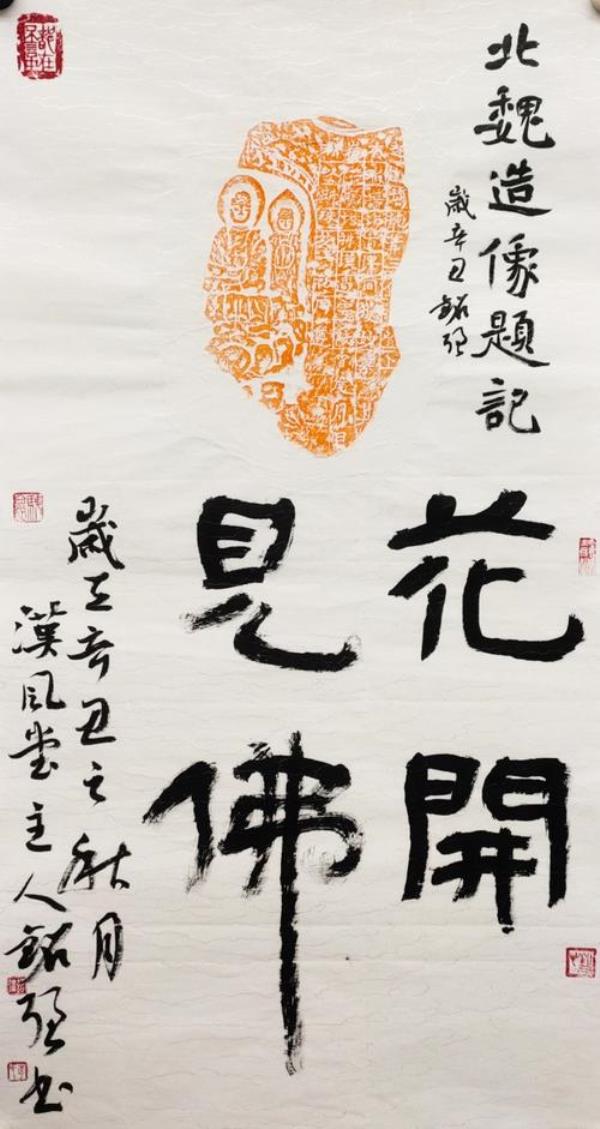 北魏造像題記
歲辛丑銘強
花開
見佛
歲在辛丑之秋月
漢風堂主人銘強书